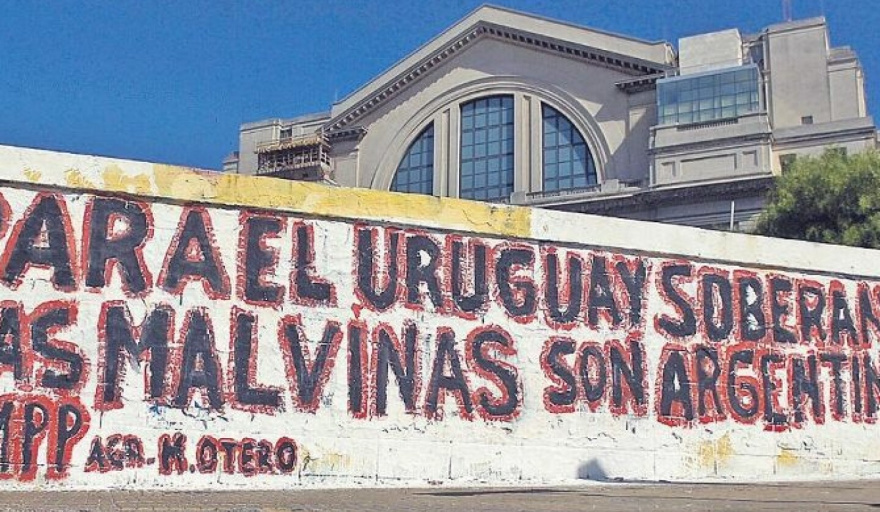 PARA EL URUGUAY SOBERAN
AS MALVINAS SON ARGENTIN
MPP AGR. M. OTERO